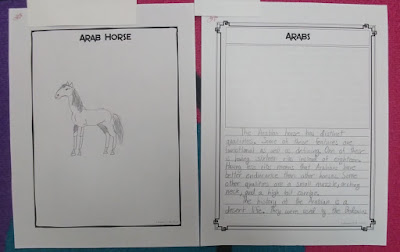 ARAB HORSE
ARABS
The Arabian horse has distinct
qualities. Some of these features are
sensational as well as defining. One of these
is having sixteen ribs instead of eighteen.
Having less ribs means that Arabians have
better endurance than other horses. Some
other qualities are a small muzzle, arching
neck, and a high tail carriage.
The history of the Arabian is a
desert like, they were used by the Bedouins